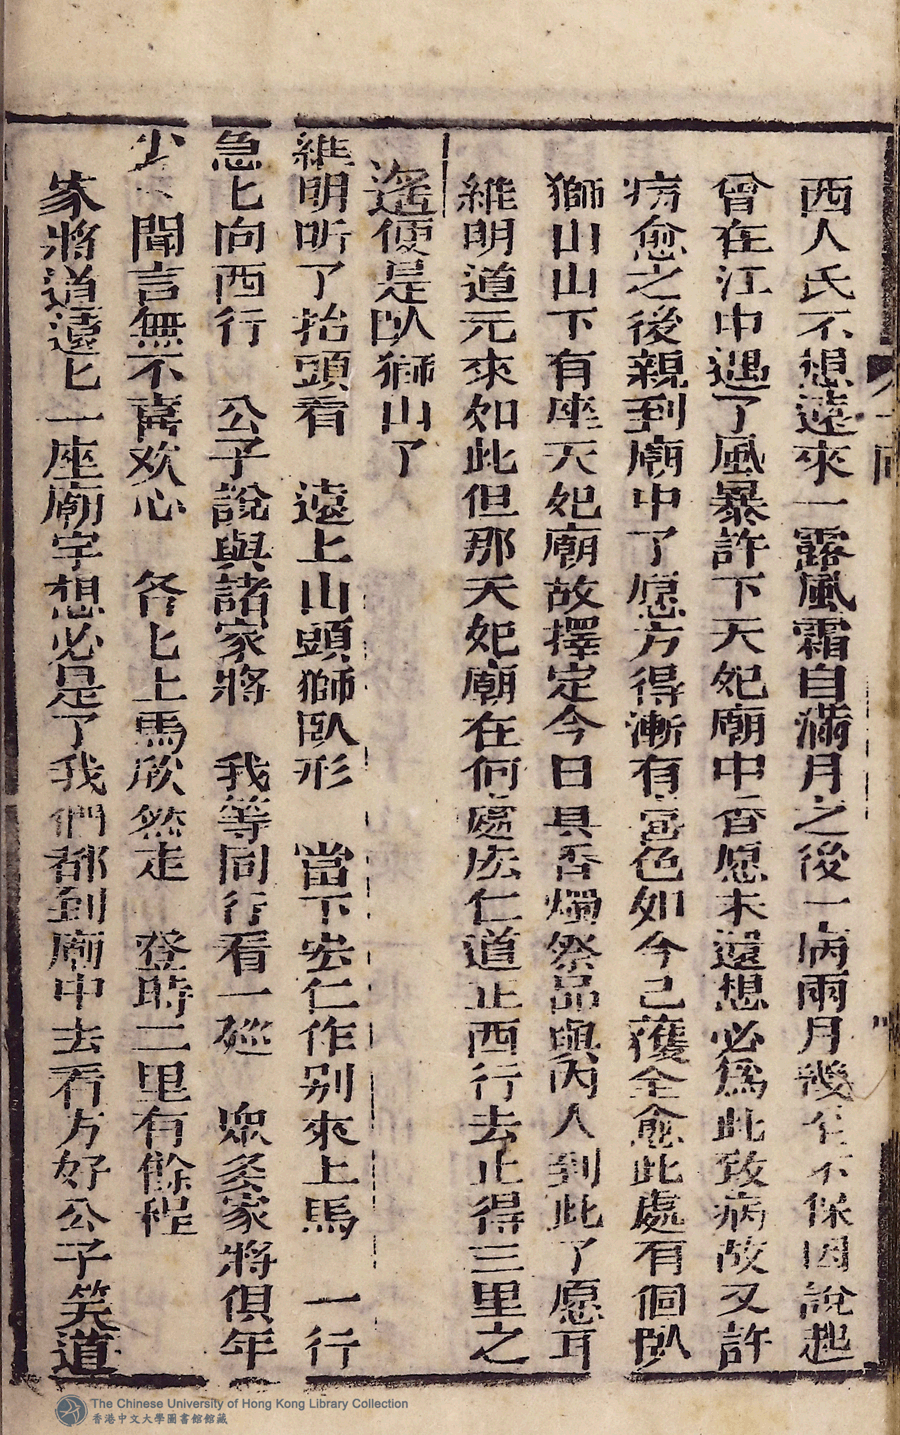 西人氏不想遠來一露風霜自滿月之後一病兩月幾乎不保因說起
曾在江中遇了風暴許下天妃廟中香愿未還想必為此致病故又許
病愈之後親到廟中了愿方得漸有當色如今已獲全愈此處有個臥
獅山山下有座天妃廟故擇定今日具香燭祭品與內人到此了愿耳
維明道元來如此但那天妃廟在何處宏仁道正西行去止得三里之
遥便是臥獅山了
維明听了抬頭看　遠上山頭獅臥形　當下宏仁作别來上馬　一行
急匕向西行　公子說與諸家將　我等同行看一磋　眾矣家將俱年
少　聞言無不喜欢心　各匕上馬欣然走　登時二里有餘程
家將道遠匕一座廟宇想必是了我們都到廟中去看方好公子笑道
回
The Chinese University of Hong Kong Library Collection
香港中文大學圖書館館藏